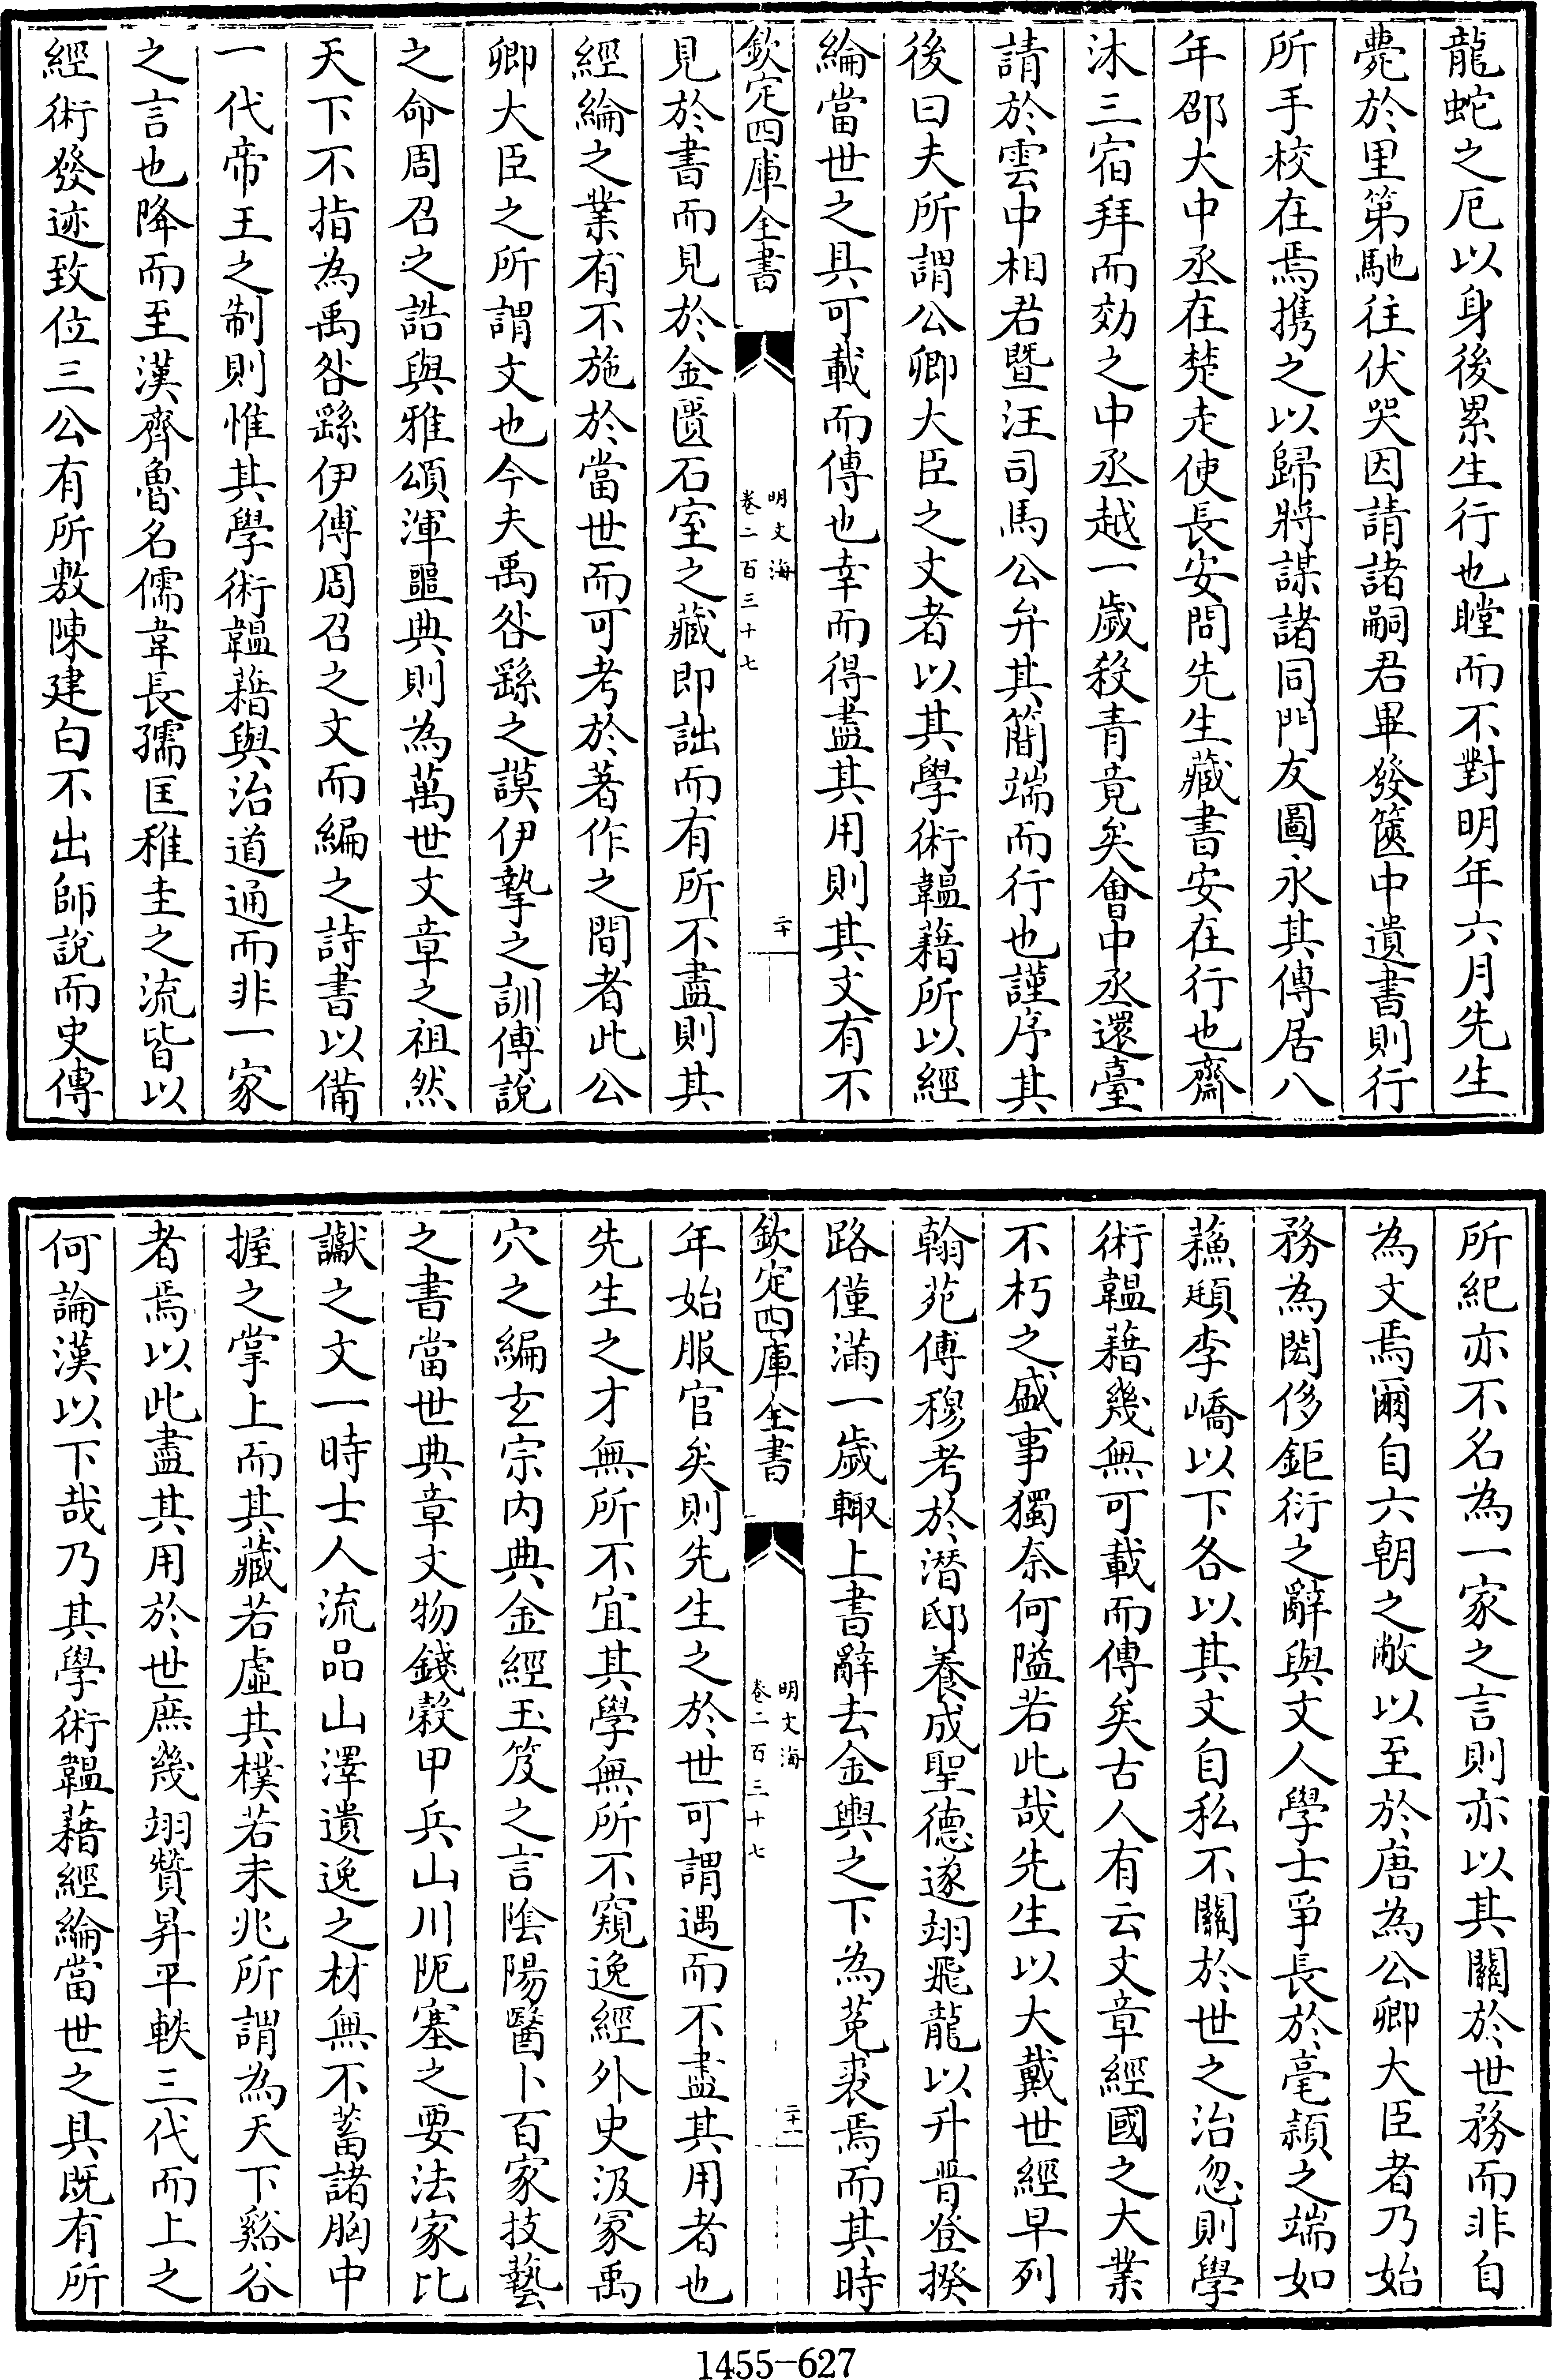 龍蛇之厄以身後累生行也瞠而不對明年六月先生
薨於里第馳往伏哭因請諸嗣君畢發篋中遺書則行
所手校在焉携之以歸將謀諸同門友圖永其傳居八
年邵大中丞在楚走使長安問先生藏書安在行也齋
沐三宿拜而効之中丞越一歲殺青竟矣會中丞還臺
請於雲中相君暨汪司馬公弁其簡端而行也謹序其
後曰夫所謂公卿大臣之文者以其學術韞藉所以經
綸當世之具可載而傳也幸而得盡其用則其文有不
欽定四庫全書
明文海
卷二百三十七
二十
見於書而見於金匱石室之藏即詘而有所不盡則其
經綸之業有不施於當世而可考於著作之間者此公
卿大臣之所謂文也今夫禹咎繇之謨伊摯之訓傅說
之命周召之誥與雅頌渾噩典則為萬世文章之祖然
天下不指為禹咎繇伊傅周召之文而編之詩書以備
一代帝王之制則惟其學術韞藉與治道通而非一家
之言也降而至漢齊魯名儒韋長孺匡稚圭之流皆以
經術發迹致位三公有所敷陳建白不出師說而史傳
所紀亦不名為一家之言則亦以其關於世務而非自
為文焉爾自六朝之敝以至於唐為公卿大臣者乃始
務為閎侈鉅衍之辭與文人學士爭長於毫穎之端如
蘓頲李嶠以下各以其文自私不關於世之治忽則學
術韞藉幾無可載而傳矣古人有云文章經國之大業
不朽之盛事獨奈何隘若此哉先生以大戴世經早列
翰苑傅穆考於潛邸養成聖德遂翊飛龍以升晉登揆
路僅滿一歲輙上書辭去金輿之下為菟裘焉而其時
欽定四庫全書
明文海
卷二百三十七
二十一
年始服官矣則先生之於世可謂遇而不盡其用者也
先生之才無所不宜其學無所不窺逸經外史汲冢禹
穴之編玄宗內典金經玉笈之言隂陽醫卜百家技藝
之書當世典章文物錢穀甲兵山川阨塞之要法家比
讞之文一時士人流品山澤遺逸之材無不蓄諸胸中
握之掌上而其藏若虛其樸若未兆所謂為天下谿谷
者焉以此盡其用於世庶幾翊贊昇平軼三代而上之
何論漢以下哉乃其學術韞藉經綸當世之具既有所
1455-627